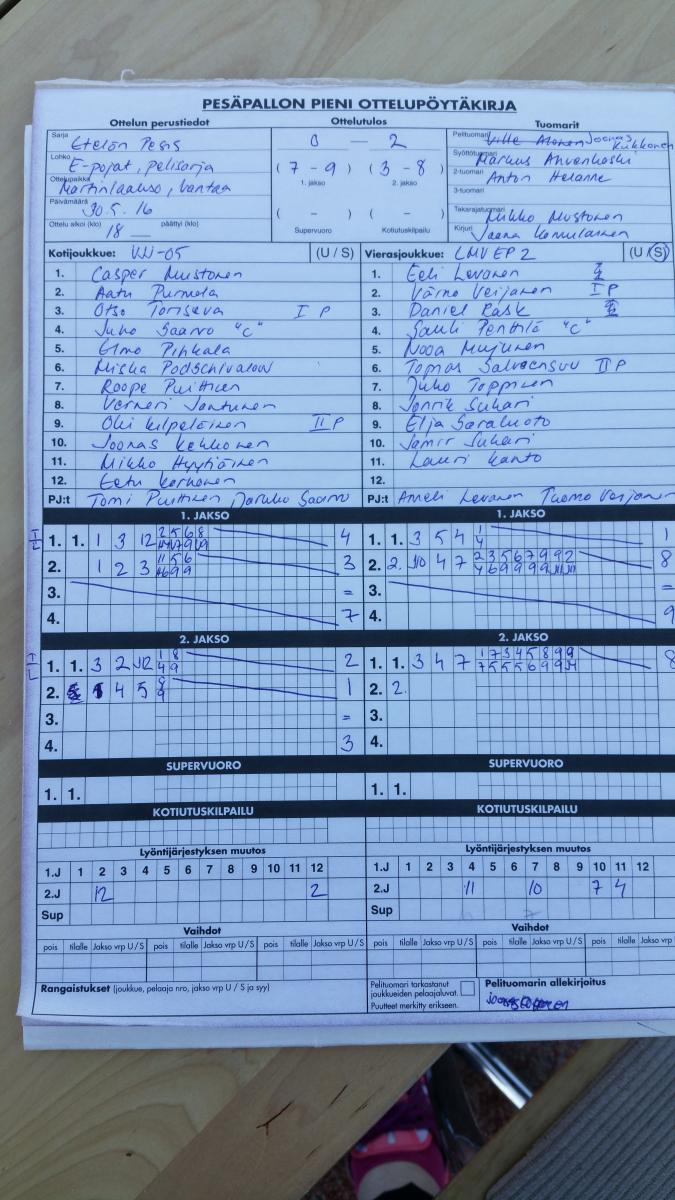 PESÄPALLON PIENI OTTELUPÖYTÄKIRJA
Ottelun perustiedot Ottelutulos Tuomarit
Sarja Etelän Pesis
Lohko E-pojat, pelisarja
Ottelupaikka Martinlaakso, Vantaa
Päivämäärä 30.5.16
Ottelu alkoi (klo) 18 päättyi (klo)
0 — 2
( 7 - 9 ) ( 3 - 8 )
1. jakso 2. jakso
( - ) ( - )
Supervuoro Kotiutuskilpailu
Pelituomari Ville Joonas Kukkonen
Syöttötuomari Markus Ahvenkoski
2-tuomari Anton Helanne
3-tuomari
Takarajatuomari Mikko Mustonen
Kirjuri Jaana
Kotijoukkue: VJJ-05 (U / S)
1. Casper Mustonen
2. Aatu Purmola
3. Otso I P
4. Juho Saarvo "C"
5. Elmo Pihkala
6. Miska Podschivalow
7. Roope Puittinen
8. Verneri Jantunen
9. Oki Kilpeläinen II P
10. Joonas Kekkonen
11. Mikko Hyytiäinen
12. Eetu Korhonen
PJ:t Tomi Puittinen Jarkko Saarvo
Vierasjoukkue: LMV EP 2 (U / S)
1. Eeli Levanen
2. Väinö Veijanen I P
3. Daniel Rask
4. Sauli Penttilä "C"
5. Nooa Mujunen
6. Tomas Salvensuu II P
7. Juho Toppinen
8. Jonrik Suhari
9. Elja Saraluoto
10. Jamir Suhari
11. Lauri Kanto
12.
PJ:t Anneli Levanen Tuomo Veijanen
1. JAKSO
1. 1. 1 3 12 4
2. 1 2 3 3
3. =
4. 7
1. JAKSO
1. 1. 3 5 4 1
2. 2. 10 4 7 8
3. =
4. 9
2. JAKSO
1. 1. 3 2 12 2
2. 4 5 1
3. =
4. 3
2. JAKSO
1. 1. 3 4 7 8
2. 2.
3.
4.
SUPERVUORO
1. 1.
SUPERVUORO
1. 1.
KOTIUTUSKILPAILU
KOTIUTUSKILPAILU
Lyöntijärjestyksen muutos
1.J 1 2 3 4 5 6 7 8 9 10 11 12
2.J 12 2
Sup
Lyöntijärjestyksen muutos
1.J 1 2 3 4 5 6 7 8 9 10 11 12
2.J 11 10 7 4
Sup
Vaihdot
pois tilalle Jakso vrp U / S pois tilalle Jakso vrp U / S pois tilalle Jakso vrp U / S
Vaihdot
pois tilalle Jakso vrp U / S pois tilalle Jakso vrp U / S pois tilalle Jakso vrp
Rangaistukset (joukkue, pelaaja nro, jakso vrp U / S ja syy)
Pelituomari tarkastanut
joukkueiden pelaajaluvat.
Puutteet merkitty erikseen.
Pelituomarin allekirjoitus